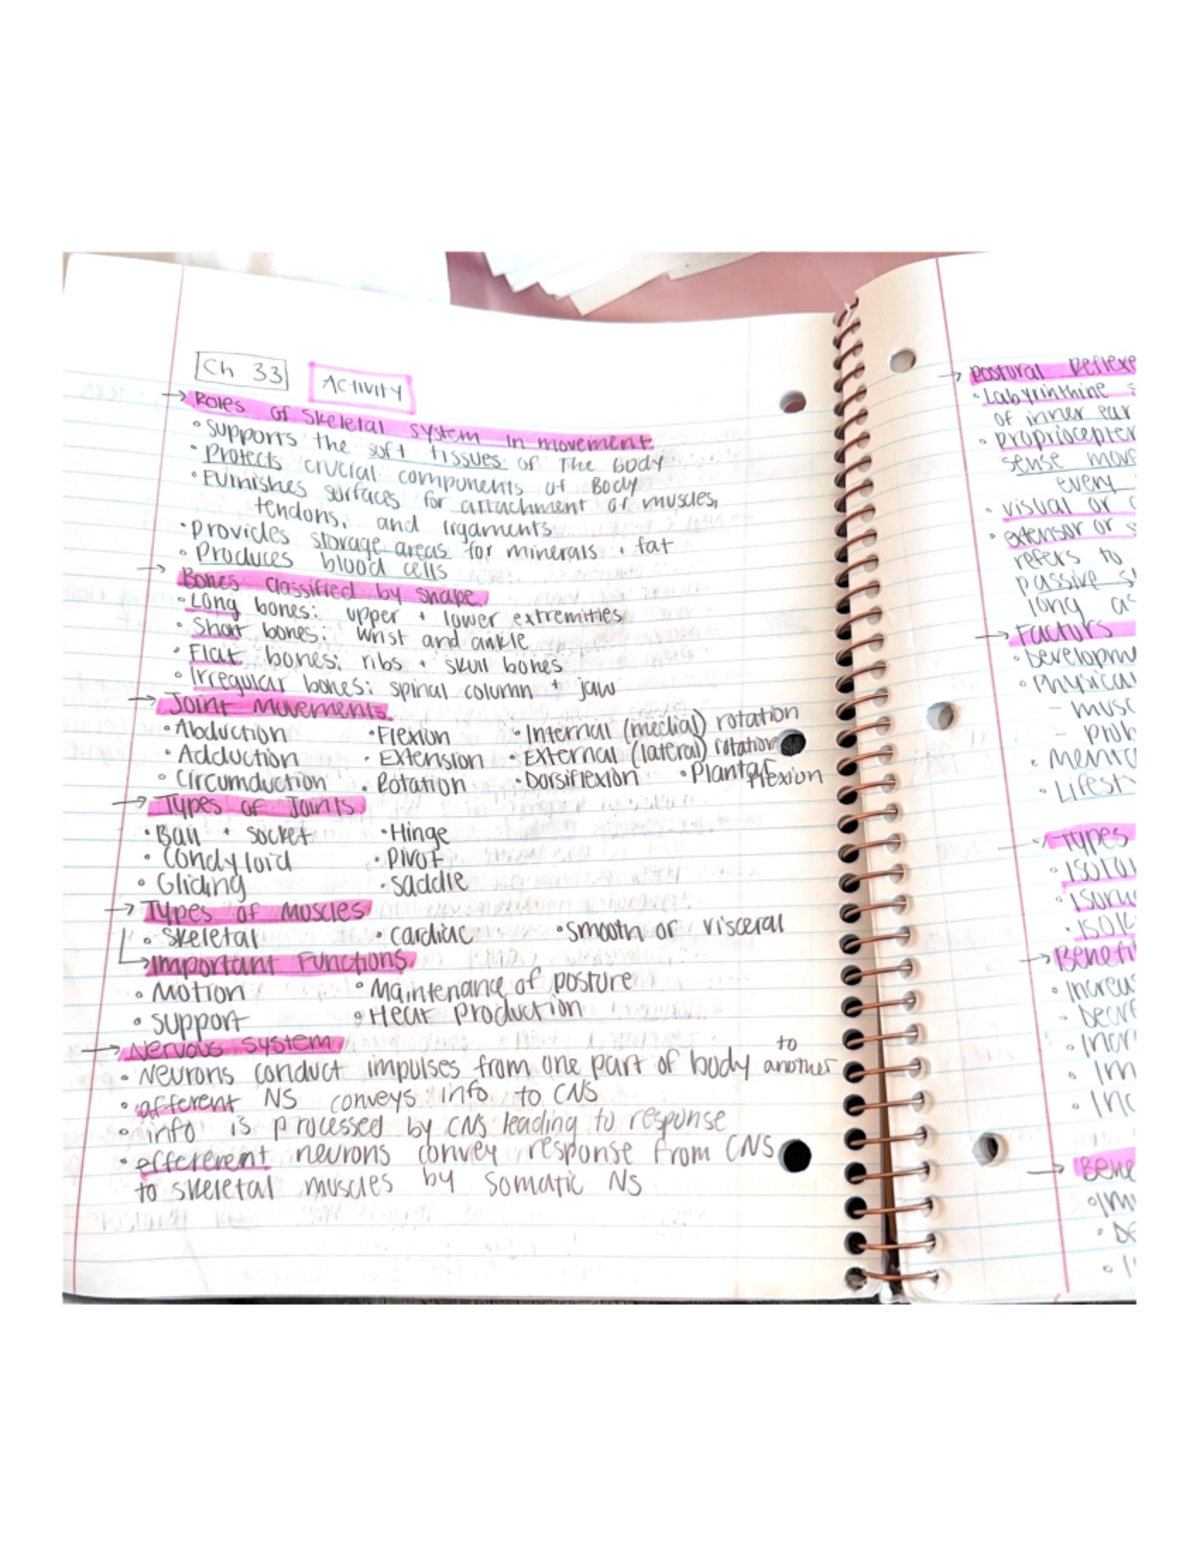 Ch 33 ACTIVITY
→ Roles of Skeletal System in movement
• supports the soft tissues of the body
• Protects crucial components of Body
• Furnishes surfaces for attachment of muscles,
tendons, and ligaments
• Provides storage areas for minerals + fat
• Produces blood cells
→ Bones classified by shape
• Long bones: upper + lower extremities
• Short bones: wrist and ankle
• Flat bones: ribs + skull bones
• Irregular bones: spinal column + jaw
→ Joint Movements
• Abduction • Flexion • Internal (medial) rotation
• Adduction • Extension • External (lateral) rotation
• Circumduction • Rotation • Dorsiflexion • Plantar flexion
→ Types of Joints
• Ball + socket • Hinge
• Condyloid • Pivot
• Gliding • saddle
→ Types of Muscles
• Skeletal • cardiac • smooth or visceral
→ Important Functions
• Motion • Maintenance of posture
• support • Heat production
→ Nervous System
• Neurons conduct impulses from one part of body to another
• afferent NS conveys info to CNS
• info is processed by CNS leading to response
• efferent neurons convey response from CNS
to skeletal muscles by Somatic NS
→ Postural Reflexe
• Labyrinthine s
of inner ear
• proprioceptor
sense move
every
• visual or o
• extensor or s
refers to
passive s
long as
→ Factors
• Developm
• Physical
- musc
- prob
• Menta
• Lifest
→ Types
• ISOT
• ISOK
→ Benefi
• Increas
• Decr
• Incr
• Im
• Inc
→ Bene
• Im
• De
• I